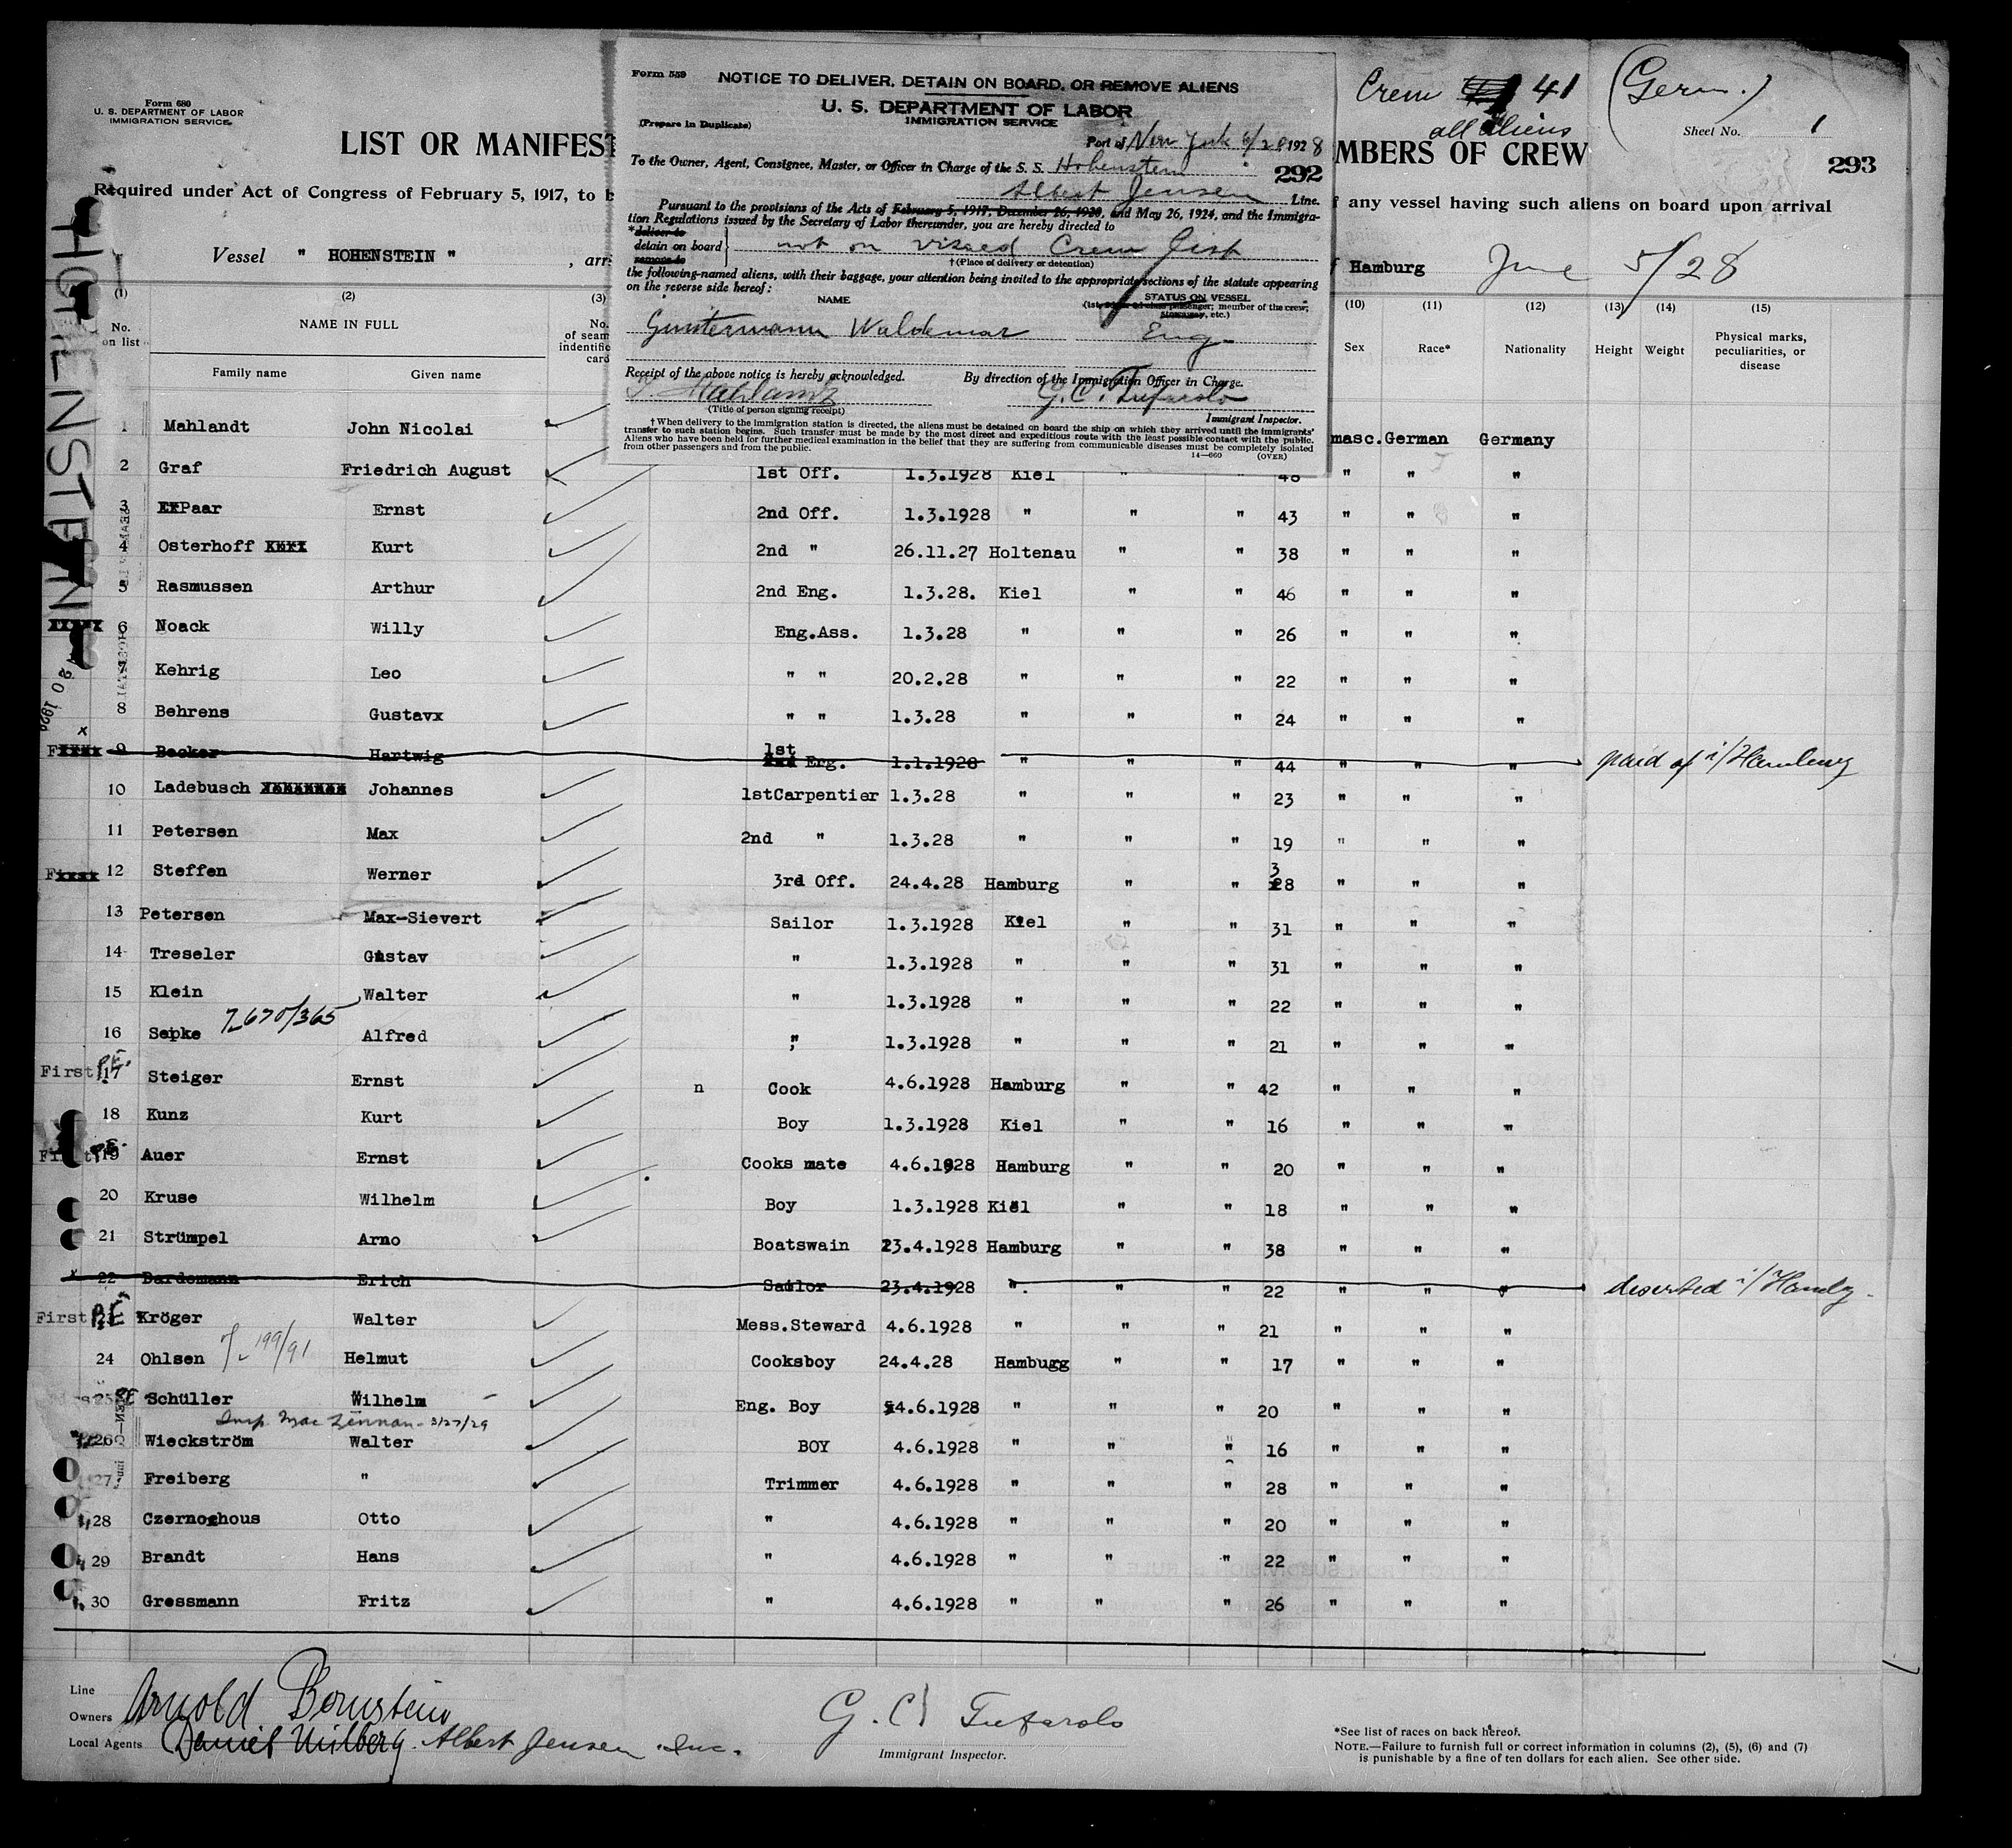 Form 680
U. S. DEPARTMENT OF LABOR
IMMIGRATION SERVICE
LIST OR MANIFEST
MBERS OF CREW
Crew 41 (Germ.)
all aliens
Sheet No. 1
293
Required under Act of Congress of February 5, 1917, to b
f any vessel having such aliens on board upon arrival
Vessel " HOHENSTEIN " , arri
f Hamburg June 5/28
HOHENSTEIN
Form 559
NOTICE TO DELIVER, DETAIN ON BOARD, OR REMOVE ALIENS
U. S. DEPARTMENT OF LABOR
IMMIGRATION SERVICE
(Prepare in Duplicate)
Port of New York 6/28 1928
To the Owner, Agent, Consignee, Master, or Officer in Charge of the S. S. Hohenstein
292
Albert Jensen Line.
Pursuant to the provisions of the Acts of February 5, 1917, December 26, 1920, and May 26, 1924, and the Immigra-
tion Regulations issued by the Secretary of Labor thereunder, you are hereby directed to
*deliver to
detain on board not on visaed Crew list
remove to
†(Place of delivery or detention)
the following-named aliens, with their baggage, your attention being invited to the appropriate sections of the statute appearing
on the reverse side hereof:
NAME
STATUS ON VESSEL
member of the crew;
stowaway, etc.)
Guntermann Waldemar Eng.
Receipt of the above notice is hereby acknowledged. By direction of the Immigration Officer in Charge.
Mahlandt G. C. Tufarolo
(Title of person signing receipt) Immigrant Inspector.
†When delivery to the immigration station is directed, the aliens must be detained on board the ship on which they arrived until the immigrants'
transfer to such station begins. Such transfer must be made by the most direct and expeditious route with the least possible contact with the public.
Aliens who have been held for further medical examination in the belief that they are suffering from communicable diseases must be completely isolated
from other passengers and from the public.
14—660 (OVER)
(1) (2) (3) (10) (11) (12) (13) (14) (15)
No. on list NAME IN FULL No. of seam indentific card Sex Race* Nationality Height Weight Physical marks, peculiarities, or disease
Family name Given name
1 Mahlandt John Nicolai masc. German Germany
2 Graf Friedrich August 1st Off. 1.3.1928 Kiel " " 48 " " "
3 Paar Ernst 2nd Off. 1.3.1928 " " " 43 " " "
4 Osterhoff Kurt 2nd " 26.11.27 Holtenau " " 38 " " "
5 Rasmussen Arthur 2nd Eng. 1.3.28. Kiel " " 46 " " "
6 Noack Willy Eng.Ass. 1.3.28 " " " 26 " " "
Kehrig Leo " " 20.2.28 " " " 22 " " "
8 Behrens Gustavx " " 1.3.28 " " " 24 " " "
9 Becker Hartwig 1st Erg. 1.1.1928 " " " 44 " " " paid of i/Hamburg
10 Ladebusch Johannes 1stCarpentier 1.3.28 " " " 23 " " "
11 Petersen Max 2nd " 1.3.28 " " " 19 " " "
12 Steffen Werner 3rd Off. 24.4.28 Hamburg " " 38 " " "
13 Petersen Max-Sievert Sailor 1.3.1928 Kiel " " 31 " " "
14 Treseler Gustav " 1.3.1928 " " " 31 " " "
15 Klein Walter " 1.3.1928 " " " 22 " " "
7670/365
16 Sepke Alfred " 1.3.1928 " " " 21 " " "
First 17 Steiger Ernst n Cook 4.6.1928 Hamburg " " 42 " " "
18 Kunz Kurt Boy 1.3.1928 Kiel " " 16 " " "
19 Auer Ernst Cooks mate 4.6.1928 Hamburg " " 20 " " "
20 Kruse Wilhelm Boy 1.3.1928 Kiel " " 18 " " "
21 Strümpel Arno Boatswain 23.4.1928 Hamburg " " 38 " " "
x 22 Bardemann Erich Sailor 23.4.1928 " " " 22 " " " deserted i/Hambg.
First Kröger Walter Mess.Steward 4.6.1928 " " " 21 " " "
24 Ohlsen 199/91 Helmut Cooksboy 24.4.28 Hambugg " " 17 " " "
25 Schüller Wilhelm Eng. Boy 4.6.1928 " " " 20 " " "
Insp. Mac Lennan - 3/27/29
26 Wieckström Walter BOY 4.6.1928 " " " 16 " " "
27 Freiberg " Trimmer 4.6.1928 " " " 28 " " "
28 Czernochous Otto " 4.6.1928 " " " 20 " " "
29 Brandt Hans " 4.6.1928 " " " 22 " " "
30 Gressmann Fritz " 4.6.1928 " " " 26 " " "
Line
Owners Arnold Bernstein
Local Agents Daniel Milberg. Albert Jensen Inc.
G. C. Tufarolo
Immigrant Inspector.
*See list of races on back hereof.
NOTE.—Failure to furnish full or correct information in columns (2), (5), (6) and (7)
is punishable by a fine of ten dollars for each alien. See other side.